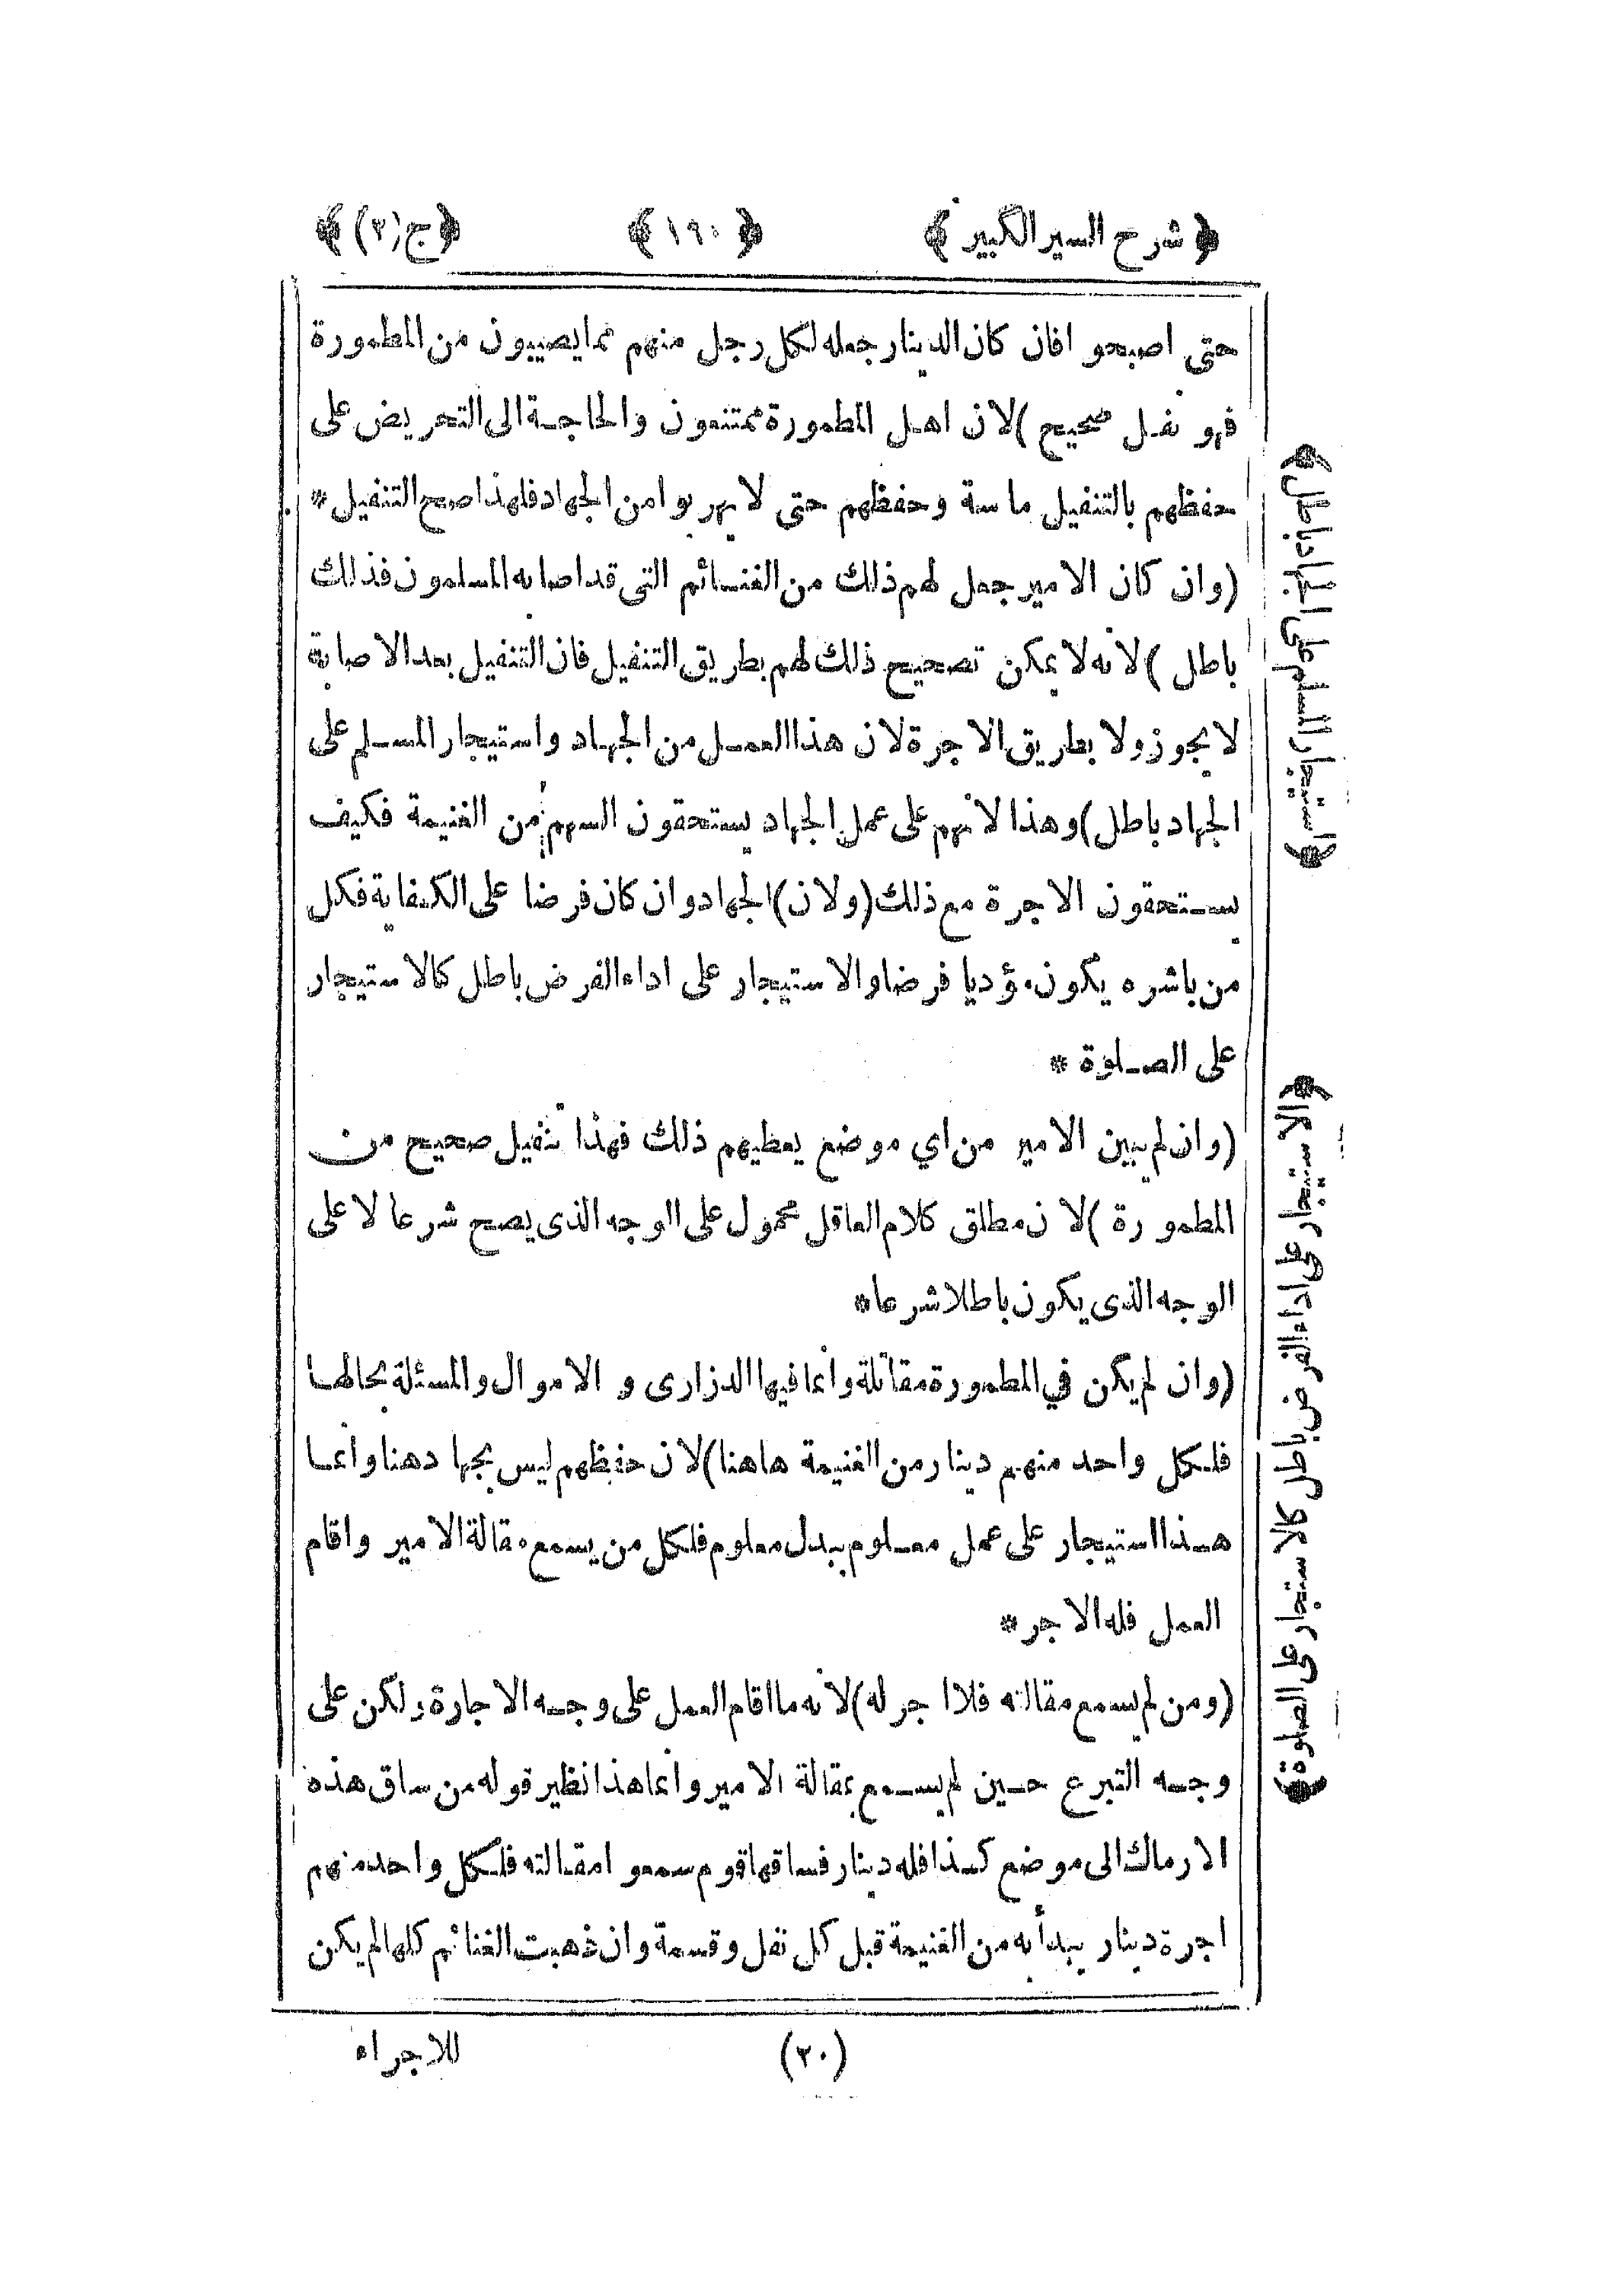 ﴿ شرح السير الكبير ﴾ ﴿ ١٩٠ ﴾ ﴿ ج (٣) ﴾
حتى اصبحوا فان كان الدينار جعله لكل رجل منهم مما يصيبون من المطمورة
فهو نفل صحيح ) لان اهل المطمورة ممتنعون والحاجة الى التحريض على
حفظهم بالتنفيل ماسة وحفظهم حتى لا يهربوا من الجهاد فلهذا صح التنفيل *
( وان كان الامير جعل لهم ذلك من الغنائم التى قد اصابه المسلمون فذلك
باطل ) لانه لا يمكن تصحيح ذلك لهم بطريق التنفيل فان التنفيل بعد الاصابة
لا يجوز ولا بطريق الاجرة لان هذا العمل من الجهاد واستيجار المسلم على
الجهاد باطل ) وهذا لانهم على عمل الجهاد يستحقون السهم من الغنيمة فكيف
يستحقون الاجرة مع ذلك ( ولان ) الجهاد وان كان فرضا على الكفاية فكل
من باشره يكون مؤديا فرضا والاستيجار على اداء الفرض باطل كالاستيجار
على الصلوة *
( وان لم يبين الامير من اي موضع يعطيهم ذلك فهذا تنفيل صحيح من
المطمورة ) لان مطلق كلام العاقل محمول على الوجه الذى يصح شرعا لا على
الوجه الذى يكون باطلا شرعا *
( وان لم يكن في المطمورة مقاتلة وانما فيها الذرارى و الاموال والمسئلة بحالها
فلكل واحد منهم دينار من الغنيمة هاهنا ) لان حفظهم ليس بجهاد هنا وانما
هذا استيجار على عمل معلوم ببدل معلوم فلكل من يسمع مقالة الامير واقام
العمل فله الاجر *
( ومن لم يسمع مقالته فلا اجر له ) لانه ما اقام العمل على وجه الاجارة ولكن على
وجه التبرع حين لم يسمع بمقالة الامير وانما هذا نظير قوله من ساق هذه
الارماك الى موضع كذا فله دينار فساقها قوم سمعوا مقالته فلكل واحد منهم
اجرة دينار يبدأ به من الغنيمة قبل كل نفل وقسمة وان ذهبت الغنائم كلها لم يكن
(٢٠) للاجراء
﴿ استيجار المسلم على الجهاد باطل ﴾
﴿ الاستيجار على اداء الفرض باطل كالاستجار على الصلوة ﴾